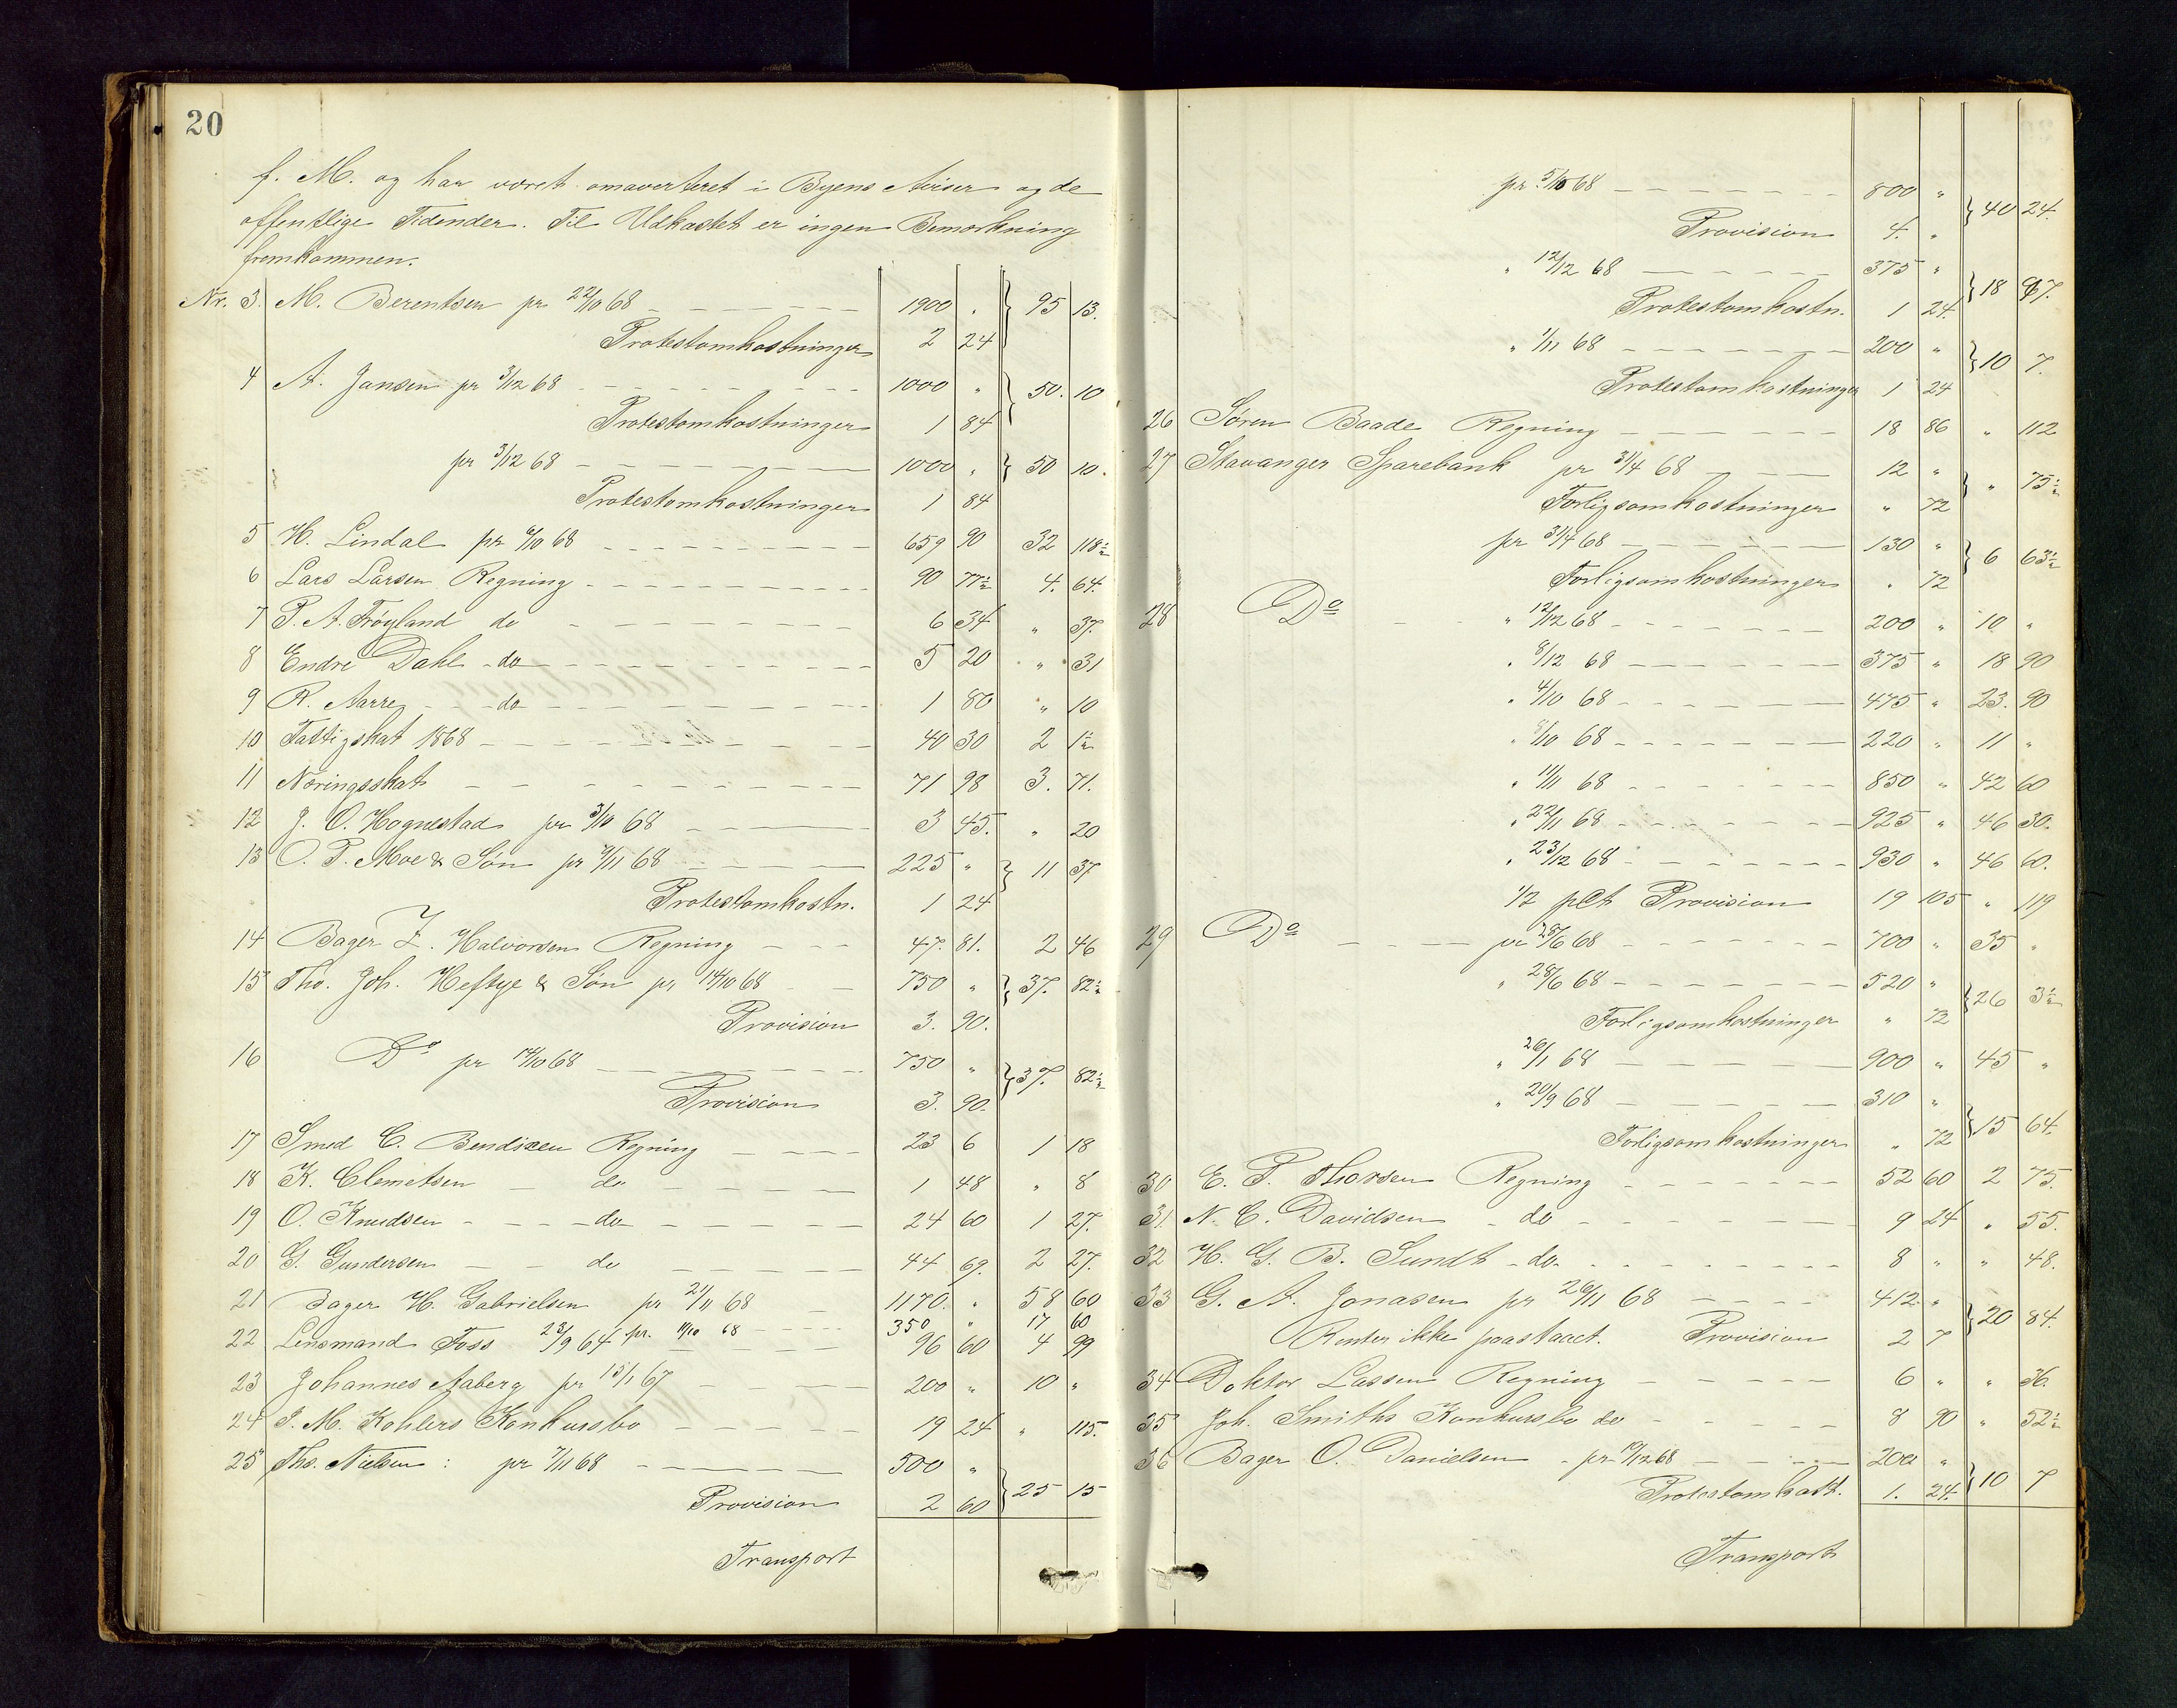 20
f. M. og har været omaverteret i Byens Aviser og de
offentlige Tidender. Til Udkastet er ingen Bemærkning
fremkommen.
Nr. 3. M. Berentsen pr 22/10 68 1900 " } 95 13.
Protestomkostninger 2 24
4 A. Jansen pr 3/12 68 1000 " } 50. 10
Protestomkostninger 1 84
pr 3/12 68 1000 " } 50 10.
Protestomkostninger 1 84
5 H. Lindal pr 6/10 68 659 90 32 118½
6 Lars Larsen Regning 90 77½ 4. 64.
7 P. A. Frøyland do 6 34 " 37.
8 Endre Dahl do 5 20 " 31
9 R. Aarre do 1 80 " 10
10 Fattigskat 1868 40 30 2 1½
11 Næringsskat 71 98 3. 71.
12 J. O. Hognestad pr 3/10 68 3 45. " 20
13 O. P. Moe & Søn pr 9/11 68 225 " } 11 37
Protestomkostn. 1 24
14 Bager Z. Halvorsen Regning 47. 81. 2 46
15 Tho. Joh. Heftye & Søn pr 14/10 68 750 " } 37. 82½
Provision 3. 90.
16 Do pr 14/10 68 750 " } 37. 82½
Provision 3. 90.
17 Smed C. Bendixen Regning 23 6 1 18
18 K. Clemetsen do 1 48 " 8
19 O. Knudsen do 24 60 1 27.
20 G. Gundersen do 44 69. 2 27.
21 Bager H. Gabrielsen pr 21/11 68 1170. " 58 60
pr. 11/10 68 350 " 17 60
22 Lensmand Foss 23/9 64 96 60 4 99
23 Johannes Aaberg pr 15/1 67 200 " 10 "
24 J. M. Kohlers Konkursbo 19 24 " 115.
25 Ths. Nielsen: pr 7/11 68 500 " } 25 15
Provision 2 60
Transport
pr 5/10 68 800 " } 40 24.
Provision 4. "
" 12/12 68 375 " } 18 97.
Protestomkostn. 1 24.
" 1/11 68 200 " } 10 7.
Protestomkostninger 1 24
26 Søren Baade Regning 18 86 " 112
27 Stavanger Sparebank pr 31/4 68 12 " } " 75½
Forligsomkostninger " 72
pr 31/7 68 130 " } 6 63½
Forligsomkostninger " 72
28 Do " 12/12 68 200 " 10 "
" 8/12 68 375 " 18 90
" 4/10 68 475 " 23. 90
" 8/10 68 220 " 11 "
" 11/11 68 850 " 42 60
" 22/11 68 925 " 46 30.
" 23/12 68 930 " 46 60.
1/2 pCt Provision 19 105 " 119
29 Do pr 28/6 68 700 " 35 "
" 28/6 68 520 " } 26 3½
Forligsomkostninger " 72
" 26/1 68 900 " 45 "
" 20/9 68 310 " } 15 64.
Forligsomkostninger " 72
30 E. P. Thorsen Regning 52 60 2 75.
31 N. C. Davidsen do 9 24 " 55.
32 H. G. B. Sundt do. 8 " " 48.
33 G. A. Jonasen pr 26/11 68 412 " } 20 84.
Renter ikke paastaaet. Provision 2 7
34 Doktor Lassen Regning 6 " " 36.
35 Joh. Smiths Konkursbo do 8 90 " 52½
36 Bager O. Danielsen pr 19/12 68 200 " } 10 7
Protestomkost. 1. 24.
Transport